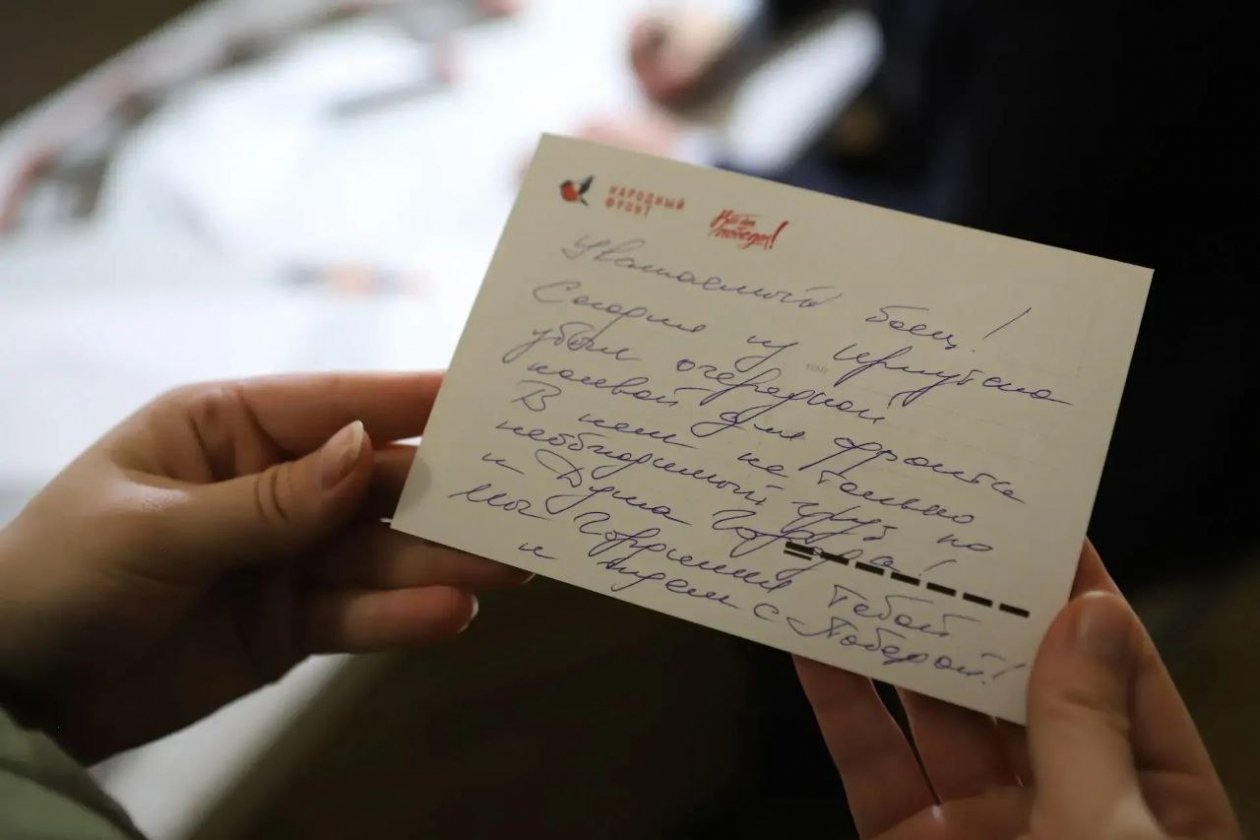 НАРОДНЫЙ
ФРОНТ
Всё для
победы!
Уважаемый боец!
Сегодня из Иркутска
убыл очередной
конвой для фронта
В нем не только
необходимый груз но
и Душа Города!
Мы Гордимся Тобой
и ждем с Победой!